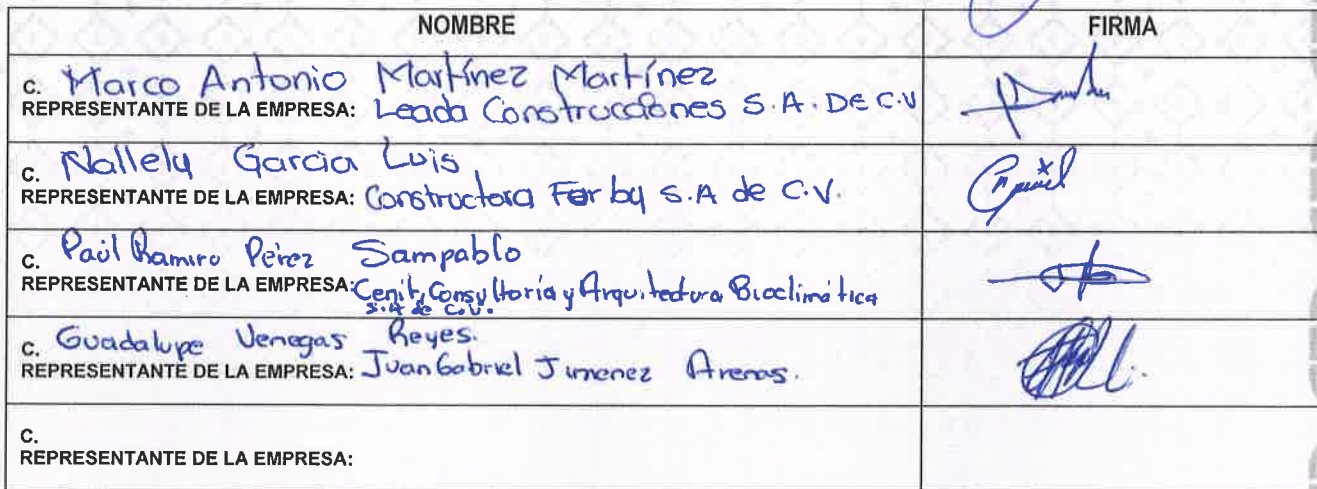 NOMBRE FIRMA
C. Marco Antonio Martínez Martínez
REPRESENTANTE DE LA EMPRESA: Leada Construcciones S.A. DE C.V
C. Nallely Garcia Luis
REPRESENTANTE DE LA EMPRESA: Constructora Forby S.A de C.V.
C. Paúl Ramiro Pérez Sampablo
REPRESENTANTE DE LA EMPRESA: Cenit, Consultoría y Arquitectura Bioclimática
S.A de C.V.
C. Guadalupe Venegas Reyes.
REPRESENTANTE DE LA EMPRESA: Juan Gabriel Jimenez Arenas.
C.
REPRESENTANTE DE LA EMPRESA: